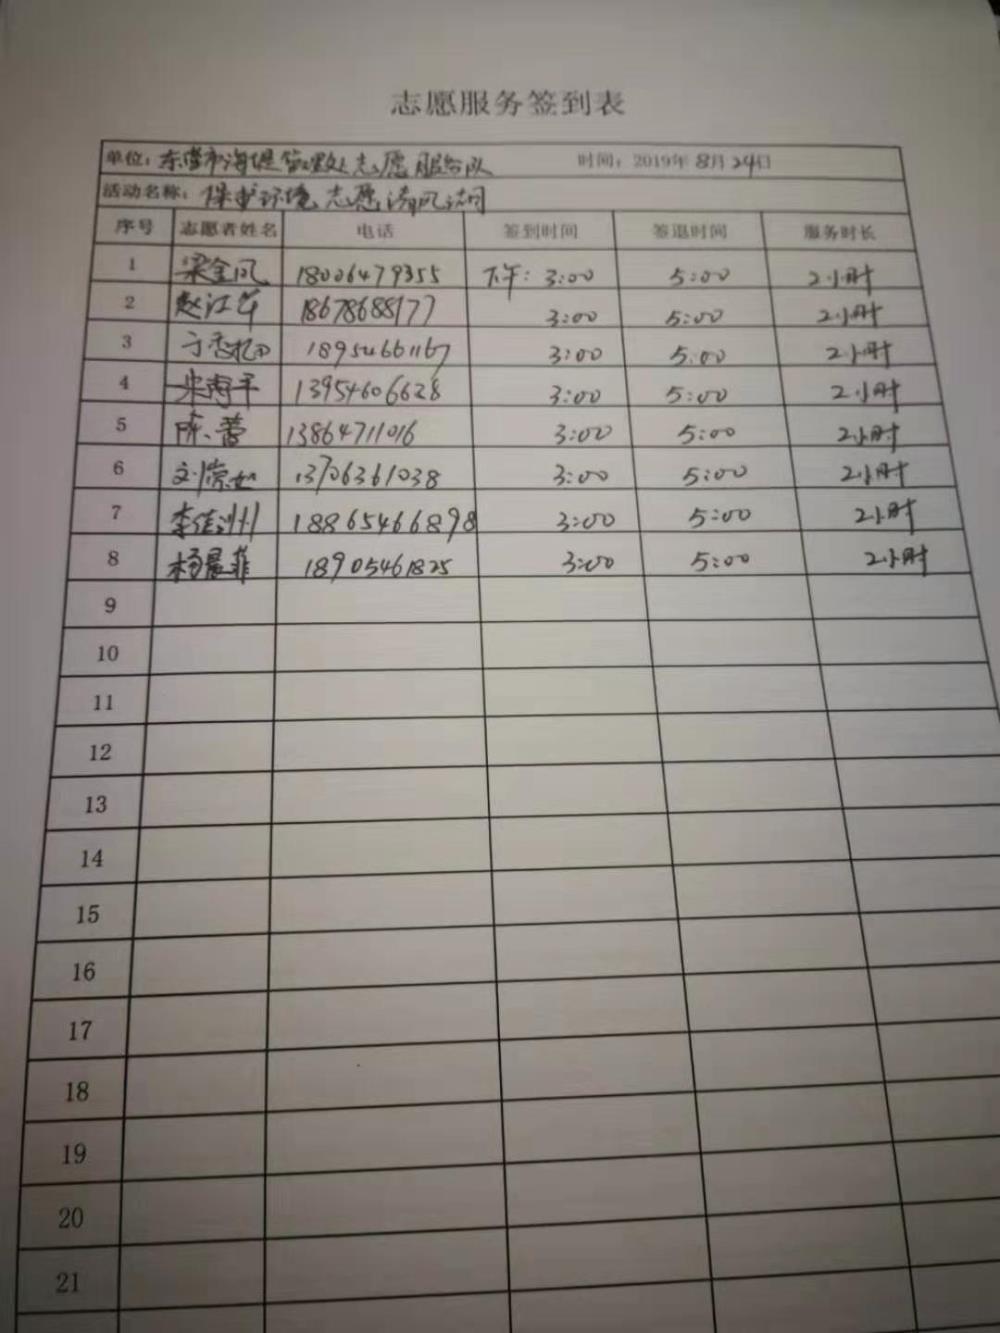 志愿服务签到表
单位：东营市海堤管理处志愿服务队 时间：2019年8月24日
活动名称：保护环境 志愿清风湖
序号 志愿者姓名 电话 签到时间 签退时间 服务时长
1 梁金凤 18006479355 下午：3:00 5:00 2小时
2 赵江华 18678688177 3:00 5:00 2小时
3 18954661167 3:00 5:00 2小时
4 13954606628 3:00 5:00 2小时
5 陈蕾 13864711016 3:00 5:00 2小时
6 刘崇如 13706361038 3:00 5:00 2小时
7 李佳洲 18865466898 3:00 5:00 2小时
8 杨晨菲 18905461825 3:00 5:00 2小时
9
10
11
12
13
14
15
16
17
18
19
20
21